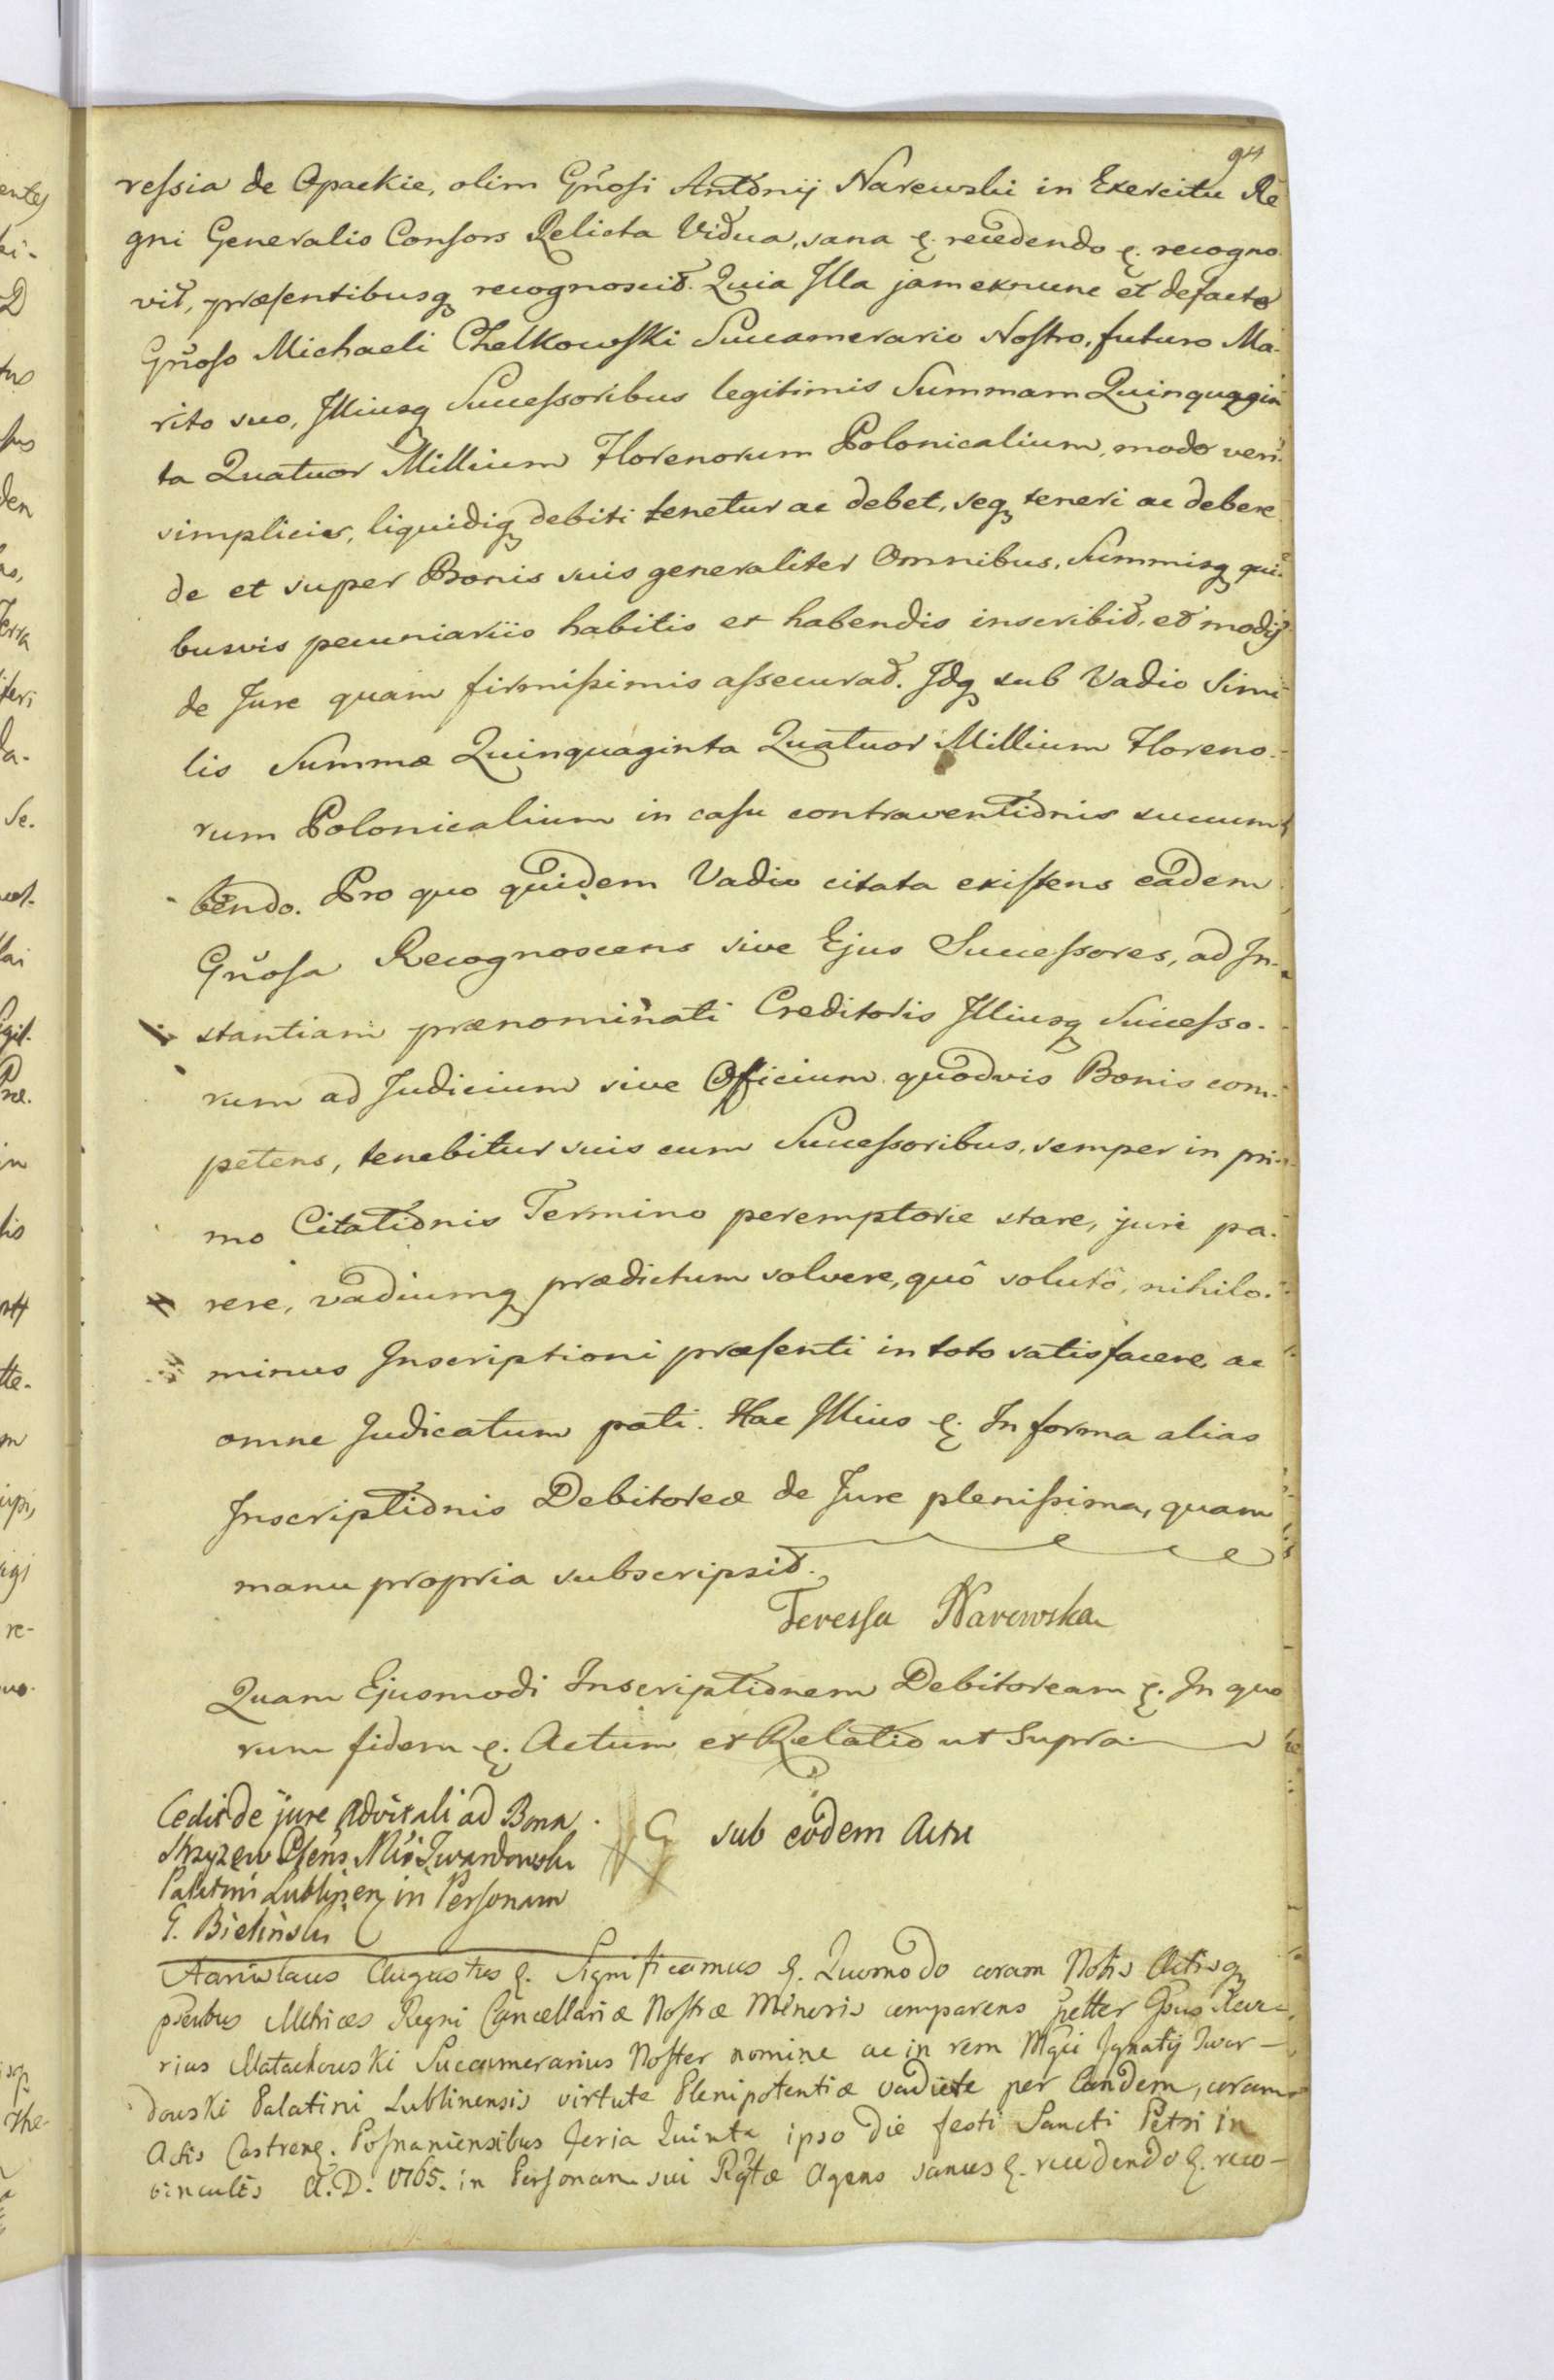 94
ressia de Opackie, olim Gnosi Antonij Narewski in Exercitu Re
gni Generalis Consors Relicta Vidua, sana &. recedendo &. recogno
vit, præsentibusq recognoscit. Quia Illa jam exnunc et defacto
Gnoso Michaeli Chelkowski Succamerario Nostro, futuro Ma-
rito suo, Illiusq Successoribus legitimis Summam Quinquagin
ta Quatuor Millium Florenorum Polonicalium, modo veri
simplicis, liquidiq debiti tenetur ac debet, seq teneri ac debere
de et super Bonis suis generaliter Omnibus, Summisq qui-
busvis pecuniariis habitis et habendis inscribit, et modis
de Jure quam firmissimis assecurat. Idq sub Vadio Simi
lis Summæ Quinquaginta Quatuor Millium Floreno-
rum Polonicalium in casu contraventionis succum
bendo. Pro quo quidem Vadio citata existens eadem
Gnosa Recognoscens sive Ejus Successores, ad In-
stantiam prænominati Creditoris Illiusq Successo-
rum ad Judicium sive Officium quodvis Bonis com-
petens, tenebitur suis cum Successoribus, semper in pri-
mo Citationis Termino peremptorie stare, juri pa-
rere, vadiumq prædictum solvere, quô solutô, nihilo-
minus Inscriptioni præsenti in toto satisfacere, ac
omne Judicatum pati. Hac Illius &. In forma alias
Inscriptionis Debitoreæ de Jure plenissima, quam
manu propria subscripsit.
Teressa Narewska
Quam Ejusmodi Inscriptionem Debitoream &. In quo
rum fidem &. Actum et Relatio ut Supra.
Cedit de jure Advitali ad Bona
Strzyzew Mis Twardowski
Palatini Lublinen in Personam
G. Bielinski
sub eodem Actu
Stanislaus Augustus &. Significamus &. Quomodo coram Notis Actisq
psentibus Metrices Regni Cancellariæ Nostræ Minoris comparens psetter Gsus Xave-
rius Matachowski Succamerarius Noster nomine ac in rem Mgci Ignatij Twar-
dowski Palatini Lublinensis virtute Plenipotentiæ per Eundem, coram
Actis Castren. Posnaniensibus Feria Quinta ipso die festi Sancti Petri in
vinculis A.D. 1765. in Personam sui agens sanus &. recedendo &. reco-